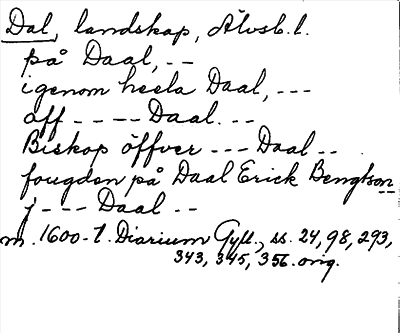 Dal, landskap, Älvsb. l.
på Daal, --
igenom heela Daal, ---
aff ---- Daal. --
Biskop öffver --- Daal --.
fougden på Daal Erick Bengtson
j --- Daal --
m. 1600-t. Diarium Gyll., ss. 24, 98, 293,
343, 345, 356. orig.